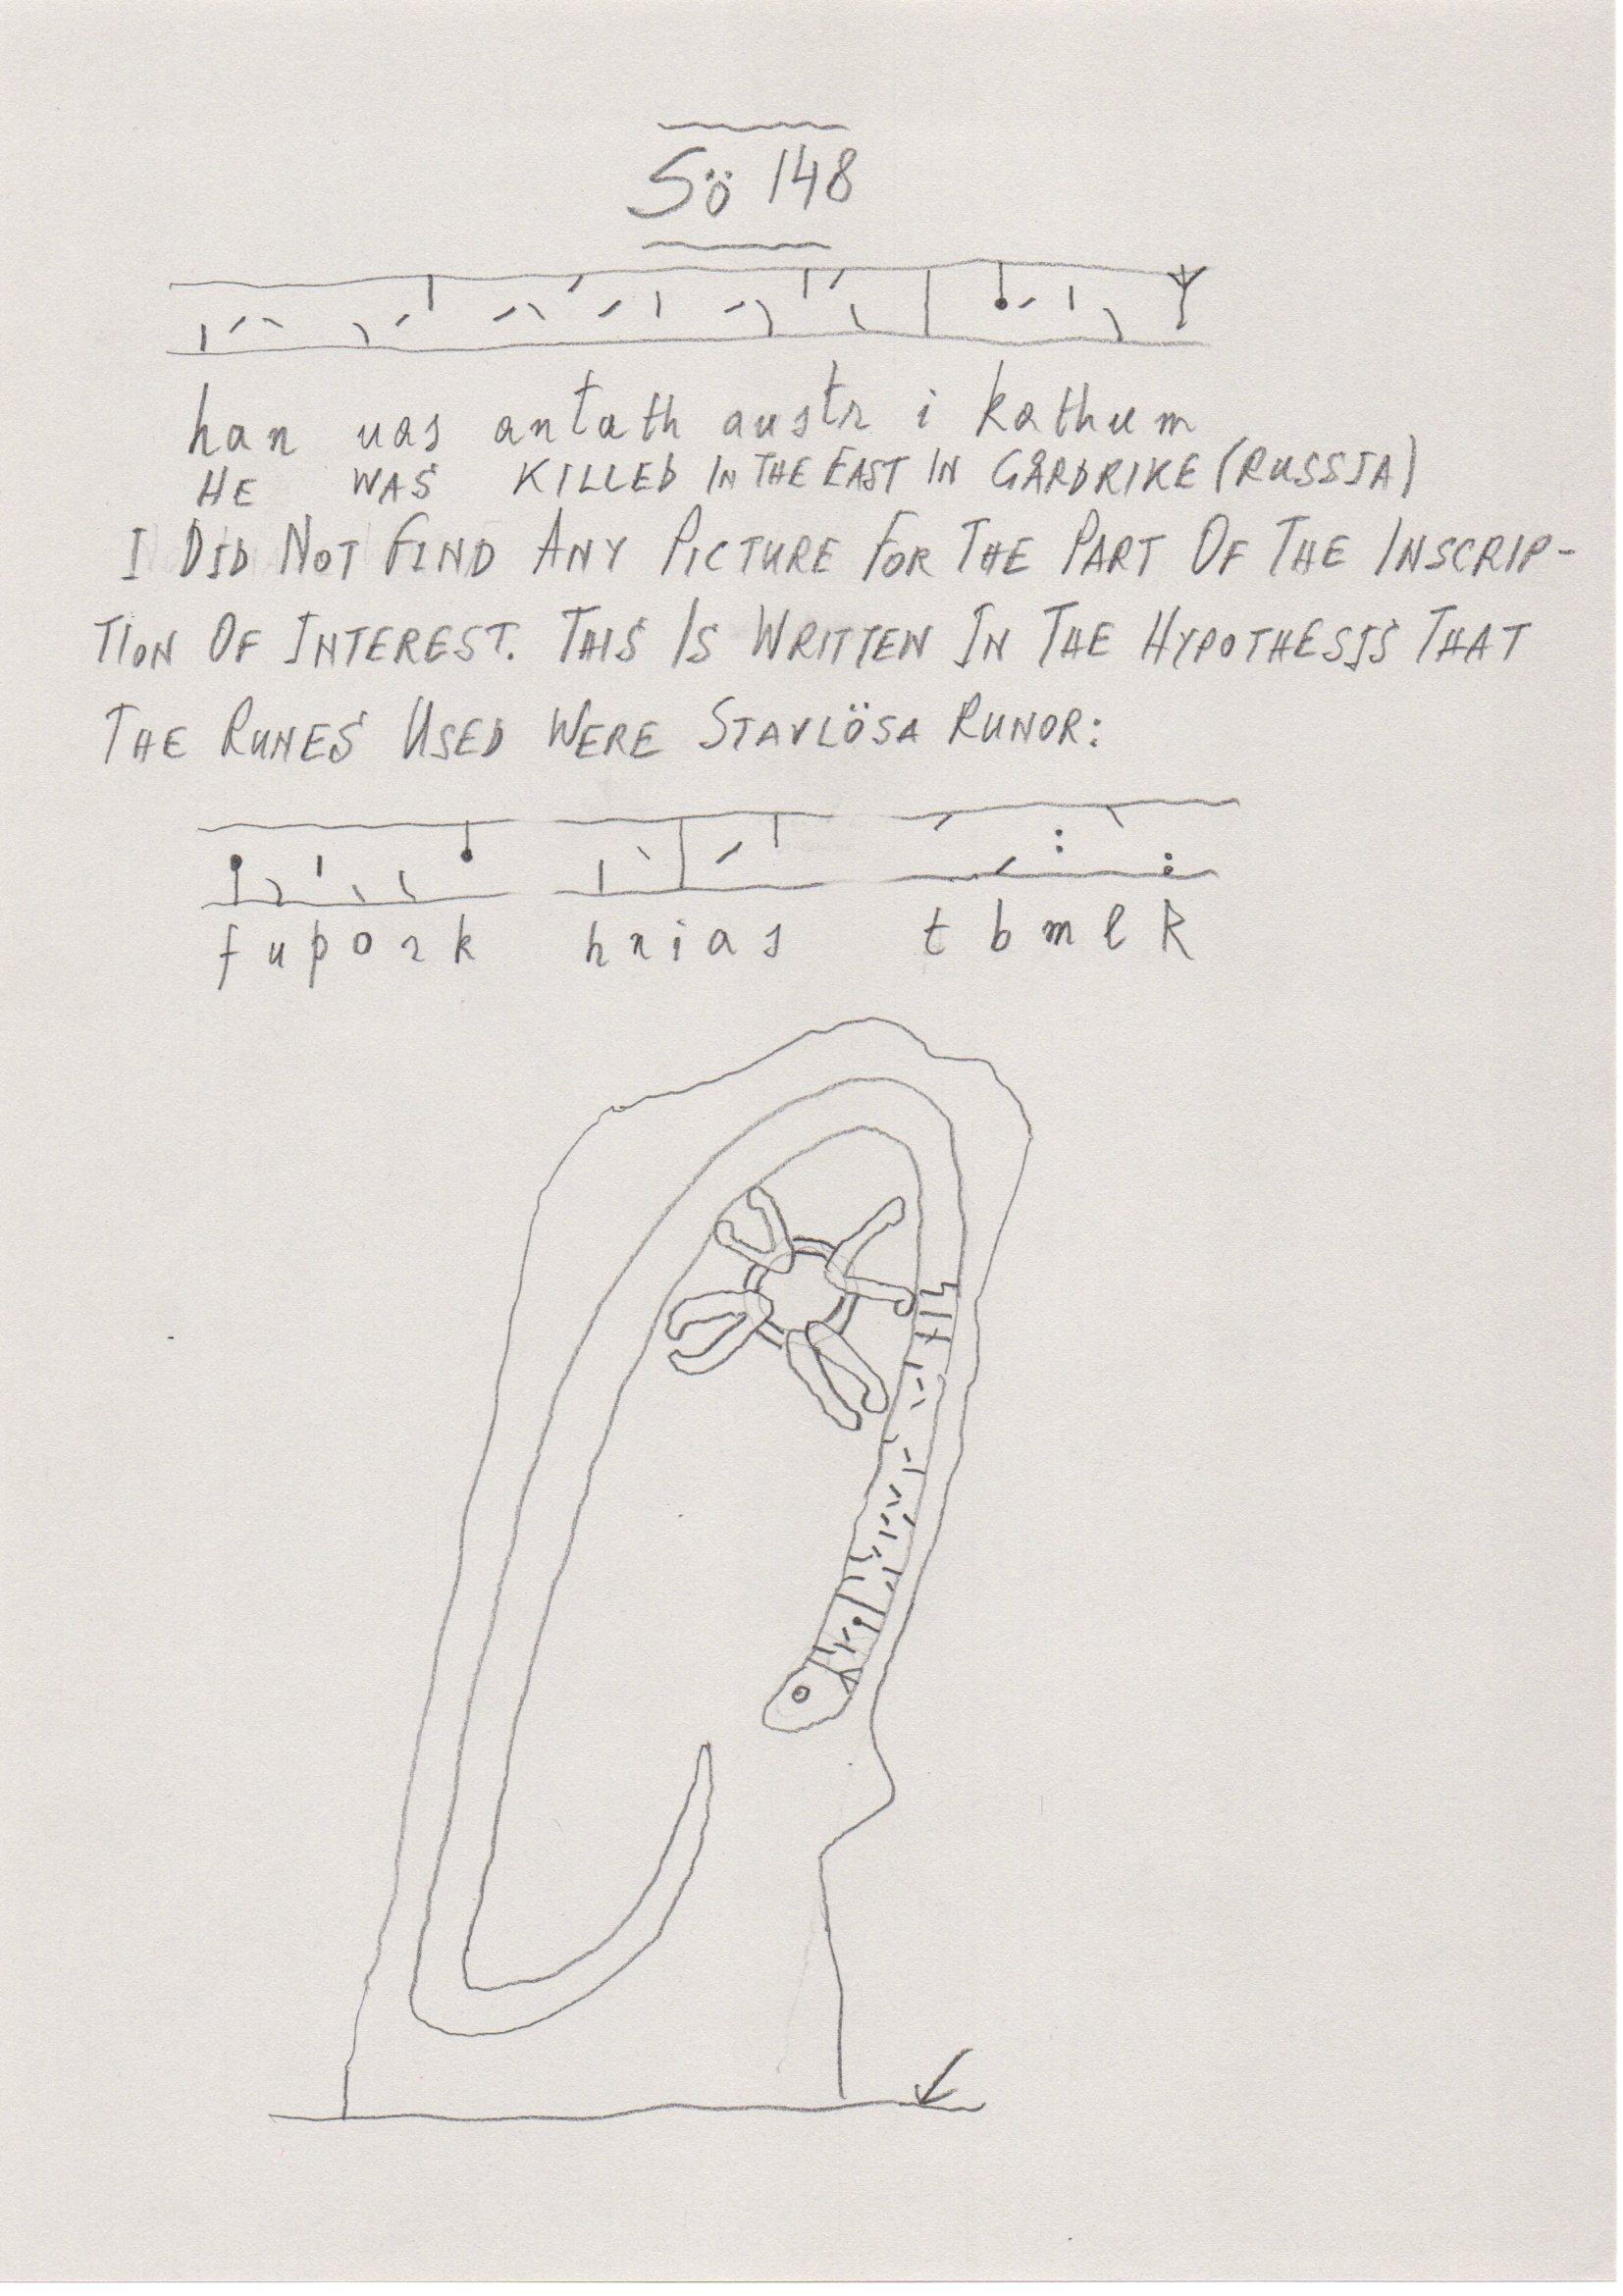 Sö 148
han uas antath austr i kathum
HE WAS KILLED IN THE EAST IN GÅRDRIKE (RUSSIA)
I DID NOT FIND ANY PICTURE FOR THE PART OF THE INSCRIP-
TION OF INTEREST. THIS IS WRITTEN IN THE HYPOTHESIS THAT
THE RUNES USED WERE STAVLÖSA RUNOR:
f u þ o r k h n i a s t b m l R